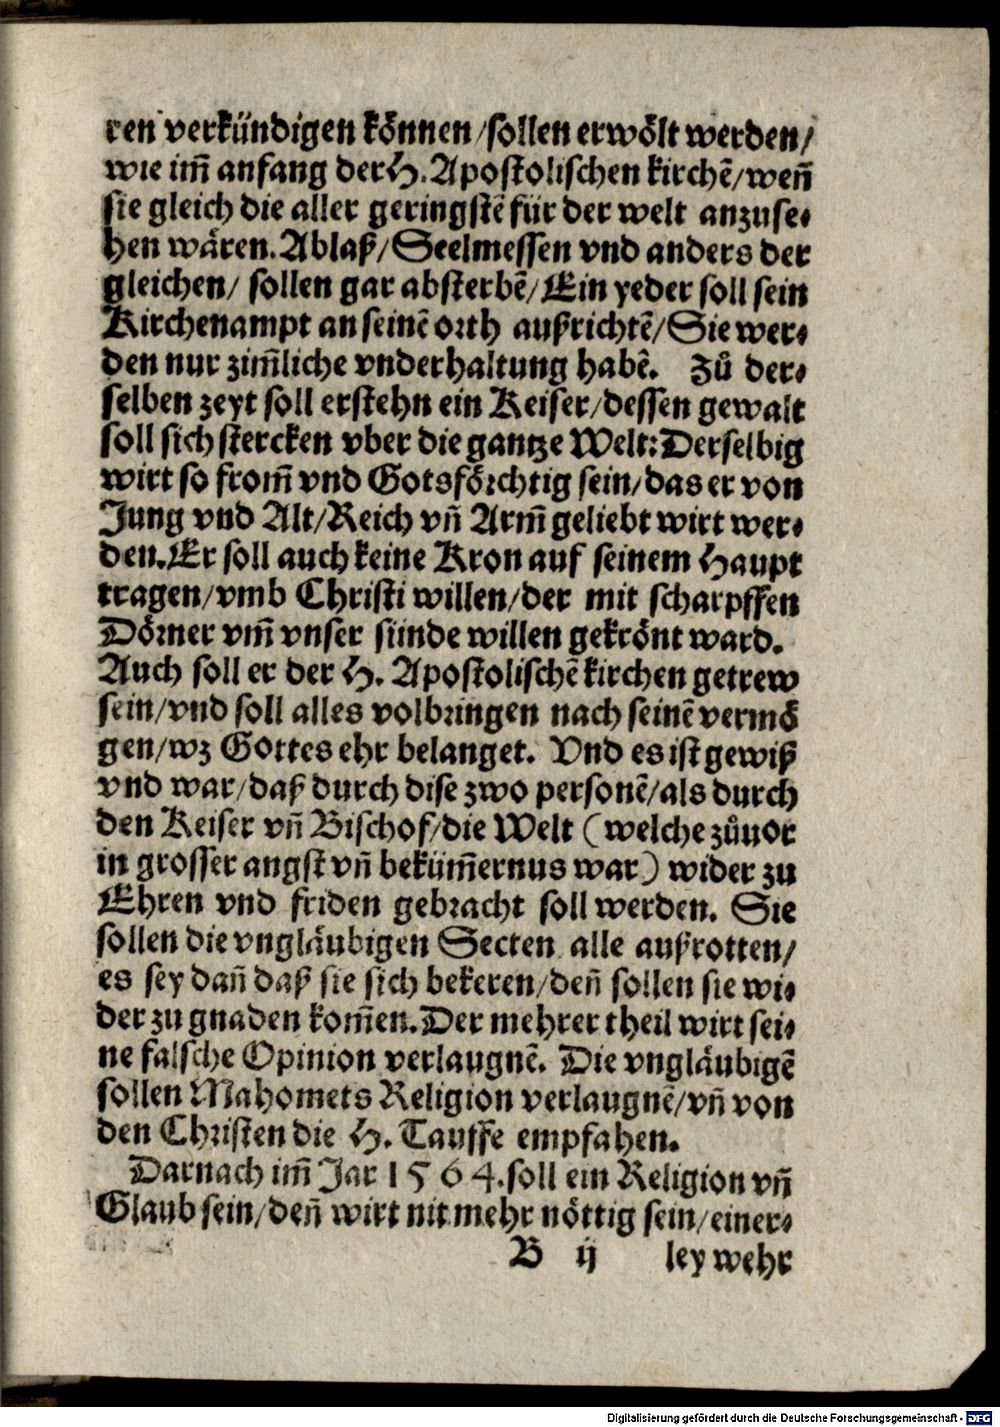 ren verkündigen können/sollen erwölt werden/
wie im̃ anfang der H. Apostolischen kirchẽ/weñ
sie gleich die aller geringstẽ für der welt anzuse⸗
hen wären. Ablaß/Seelmessen vnd anders der
gleichen/ sollen gar absterbẽ/Ein yeder soll sein
Kirchenampt an seinẽ orth außrichtẽ/Sie wer⸗
den nur zim̃liche vnderhaltung habẽ. Zů der⸗
selben zeyt soll erstehn ein Keiser/dessen gewalt
soll sich stercken vber die gantze Welt: Derselbig
wirt so from̃ vnd Gotsförchtig sein/das er von
Jung vnd Alt/Reich vñ Arm̃ geliebt wirt wer⸗
den. Er soll auch keine Kron auf seinem Haupt
tragen/vmb Christi willen/der mit scharpffen
Dörner vm̃ vnser sünde willen gekrönt ward.
Auch soll er der H. Apostolischẽ kirchen getrew
sein/vnd soll alles volbringen nach seinẽ vermö
gen/wz Gottes ehr belanget. Vnd es ist gewiß
vnd war/daß durch dise zwo personẽ/als durch
den Keiser vñ Bischof/die Welt (welche zůuor
in grosser angst vñ beküm̃ernus war) wider zu
Ehren vnd friden gebracht soll werden. Sie
sollen die vngläubigen Secten alle außrotten/
es sey dañ daß sie sich bekeren/deñ sollen sie wi⸗
der zu gnaden kom̃en. Der mehrer theil wirt sei⸗
ne falsche Opinion verlaugnẽ. Die vngläubigẽ
sollen Mahomets Religion verlaugnẽ/vñ von
den Christen die H. Tauffe empfahen.
Darnach im̃ Jar 1564. soll ein Religion vñ
Glaub sein/deñ wirt nit mehr nöttig sein/einer⸗
B ij ley wehr
Digitalisierung gefördert durch die Deutsche Forschungsgemeinschaft - DFG